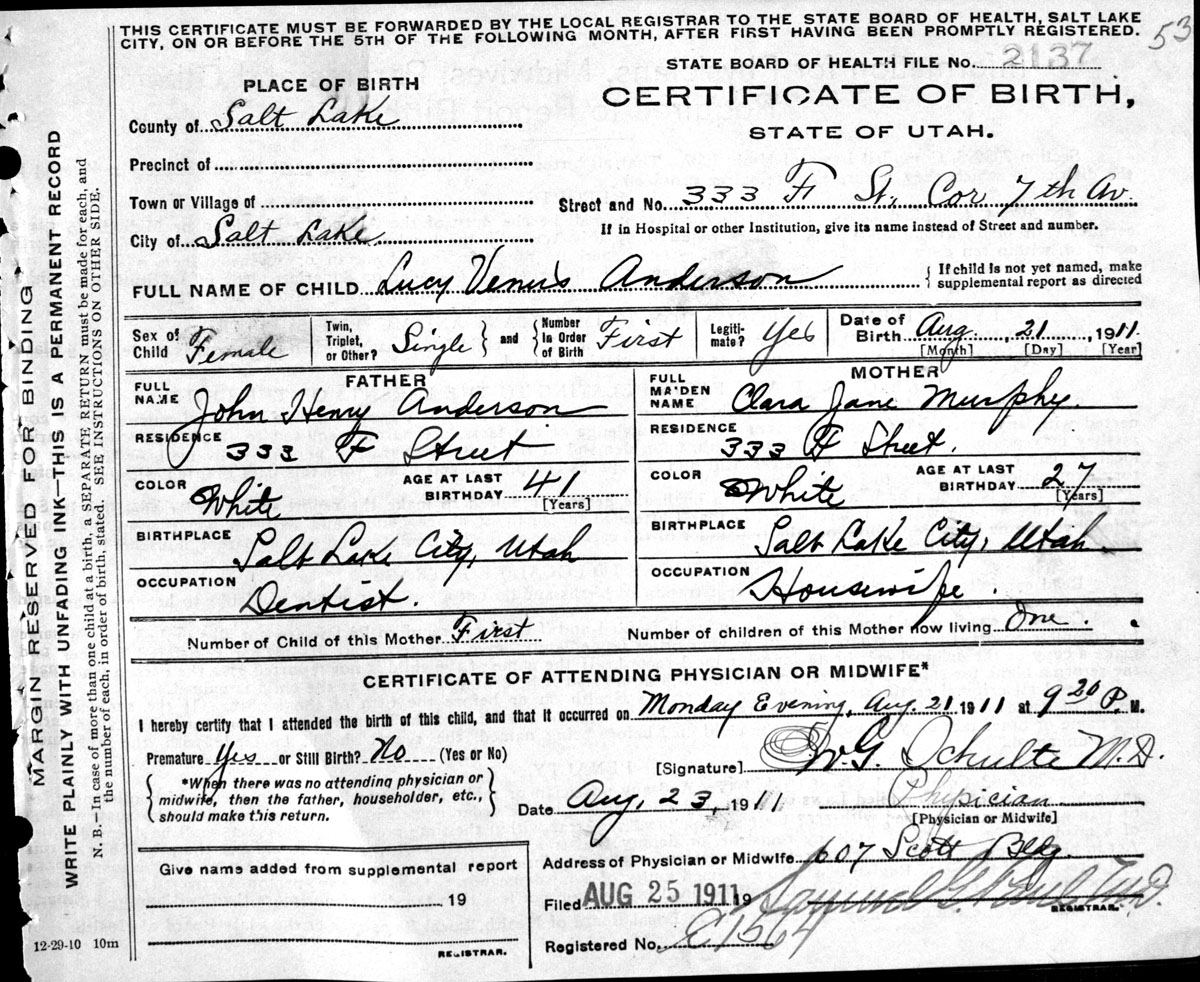 THIS CERTIFICATE MUST BE FORWARDED BY THE LOCAL REGISTRAR TO THE STATE BOARD OF HEALTH, SALT LAKE
CITY, ON OR BEFORE THE 5TH OF THE FOLLOWING MONTH, AFTER FIRST HAVING BEEN PROMPTLY REGISTERED.
53
STATE BOARD OF HEALTH FILE No. 2137
PLACE OF BIRTH
CERTIFICATE OF BIRTH,
STATE OF UTAH.
County of Salt Lake
Precinct of
Town or Village of
Street and No. 333 F St. Cor 7th Av.
City of Salt Lake
If in Hospital or other Institution, give its name instead of Street and number.
FULL NAME OF CHILD Lucy Venus Anderson
{ If child is not yet named, make
supplemental report as directed
Sex of Child Female
Twin, Triplet, or Other? Single } and { Number in Order of Birth First
Legitimate? Yes
Date of Birth Aug. 21, 1911.
[Month] [Day] [Year]
FATHER
FULL NAME John Henry Anderson
RESIDENCE 333 F Street
COLOR White
AGE AT LAST BIRTHDAY 41
[Years]
BIRTHPLACE Salt Lake City, Utah
OCCUPATION Dentist.
MOTHER
FULL MAIDEN NAME Clara Jane Murphy.
RESIDENCE 333 F Street.
COLOR White
AGE AT LAST BIRTHDAY 27
[Years]
BIRTHPLACE Salt Lake City, Utah
OCCUPATION Housewife.
Number of Child of this Mother First
Number of children of this Mother now living One.
CERTIFICATE OF ATTENDING PHYSICIAN OR MIDWIFE*
I hereby certify that I attended the birth of this child, and that it occurred on Monday Evening, Aug. 21 1911 at 9 20 P. M.
Premature Yes or Still Birth? No (Yes or No)
[Signature] W. G. Schulte M.D.
{ *When there was no attending physician or
midwife, then the father, householder, etc.,
should make this return. }
Date Aug. 23, 1911
Physician
[Physician or Midwife]
Address of Physician or Midwife 607 Scott Bldg.
Give name added from supplemental report
19
REGISTRAR.
Filed AUG 25 1911 19 Samuel G. M.D.
REGISTRAR.
Registered No. 1564
12-29-10 10m
MARGIN RESERVED FOR BINDING
WRITE PLAINLY WITH UNFADING INK—THIS IS A PERMANENT RECORD
N. B.—In case of more than one child at a birth, a SEPARATE RETURN must be made for each, and
the number of each, in order of birth, stated. SEE INSTRUCTIONS ON OTHER SIDE.